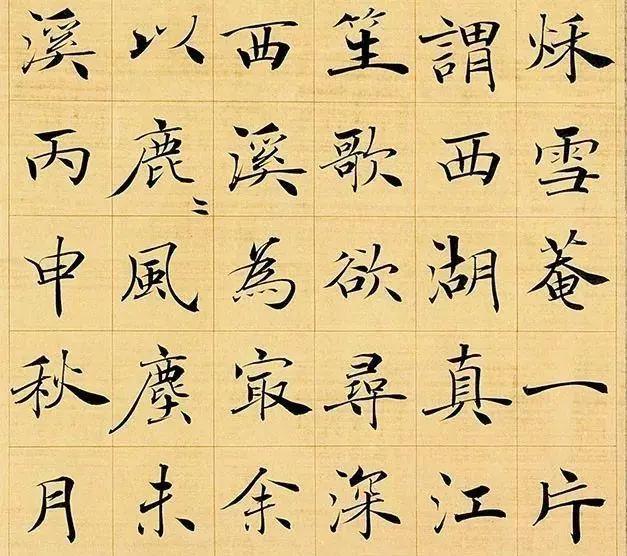 秌雪菴一片
謂西湖真江
笙歌欲尋深
西溪為㝡余
以鹿〻風塵未
溪丙申秋月